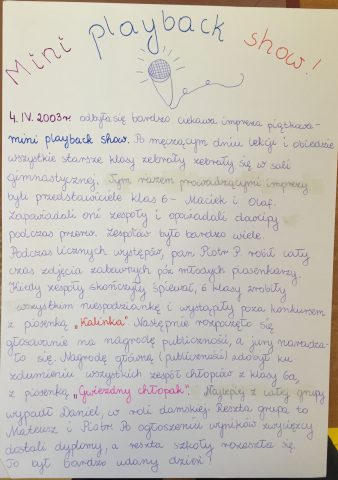 Mini playback show!
4. IV. 2003r. odbyła się bardzo ciekawa impreza piątkowa -
mini playback show. Po męczącym dniu lekcji i obiedzie
wszystkie starsze klasy zebrały zebrały się w sali
gimnastycznej. Tym razem prowadzącymi imprezy
byli przedstawiciele klas 6 - Maciek i Olaf.
Zapowiadali oni zespoły i opowiadali dowcipy
podczas przerw. Zespołów było bardzo wiele.
Podczas licznych występów, pan Piotr P. robił cały
czas zdjęcia zabawnych póz młodych piosenkarzy.
Kiedy zespoły skończyły śpiewać, 6 klasy zrobiły
wszystkim niespodziankę i wystąpiły poza konkursem
z piosenką „Kalinka" Następnie rozpoczęto się
głosowanie na nagrodę publiczności, a jury naradza-
ło się. Nagrodę główną (publiczności) zdobył ku
zdumieniu wszystkich zespół chłopców z klasy 6a,
z piosenką „Gwiezdny chłopak". Najlepiej z całej grupy
wypadł Daniel, w roli damskiej. Reszta grupa to
Mateusz i Piotr. Po ogłoszeniu wyników zwycięzcy
dostali dyplomy, a reszta szkoły rozeszła się.
To był bardzo udany dzień!